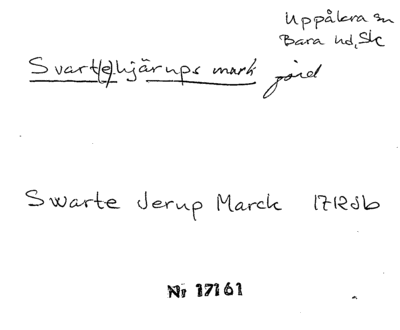 Uppåkra sn
Bara hd, Sk
Svart(e)hjärups mark jord
Swarte Jerup Marck 1712 Jb
Nr 17161